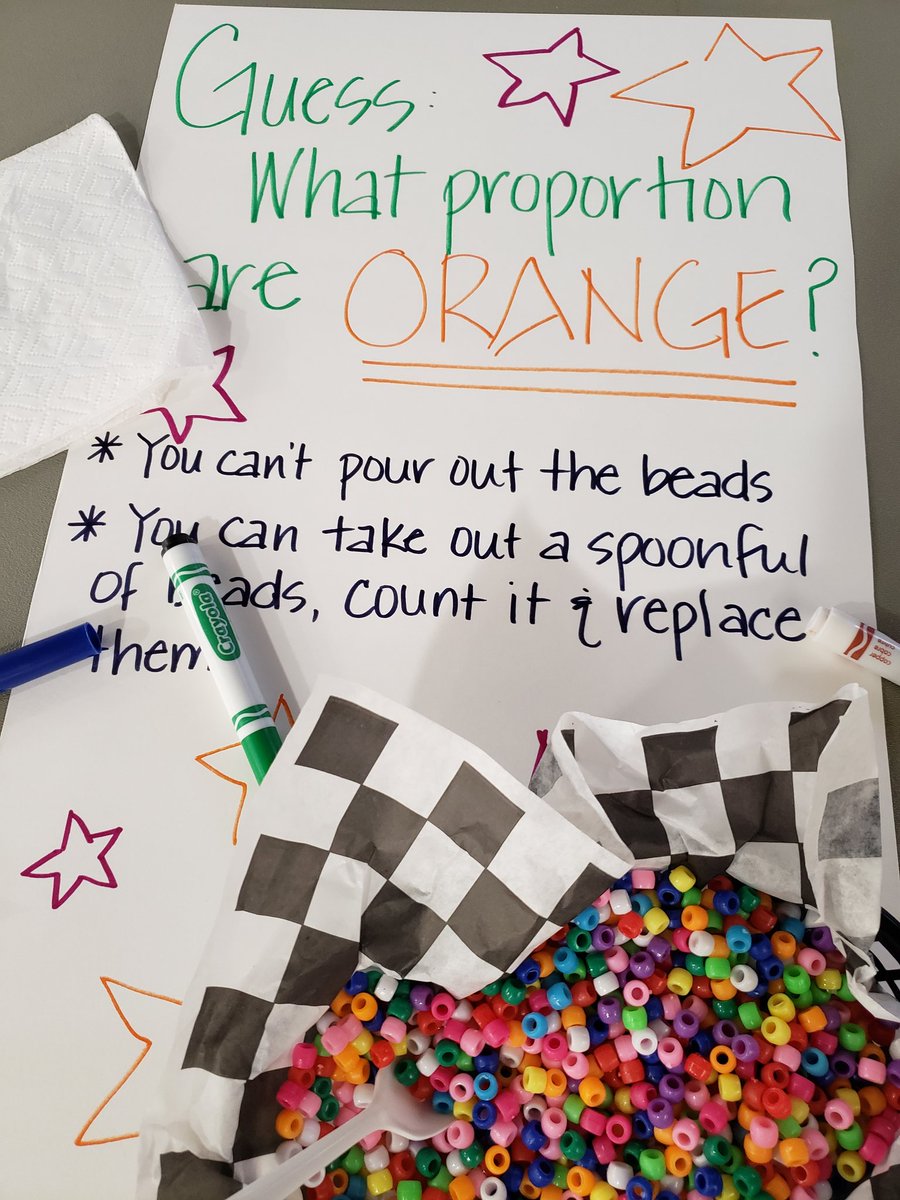 Guess:
What proportion
are ORANGE?
* You can't pour out the beads
* You can take out a spoonful
of beads, count it & replace
them.
Crayola
copper
cobre
cuivre